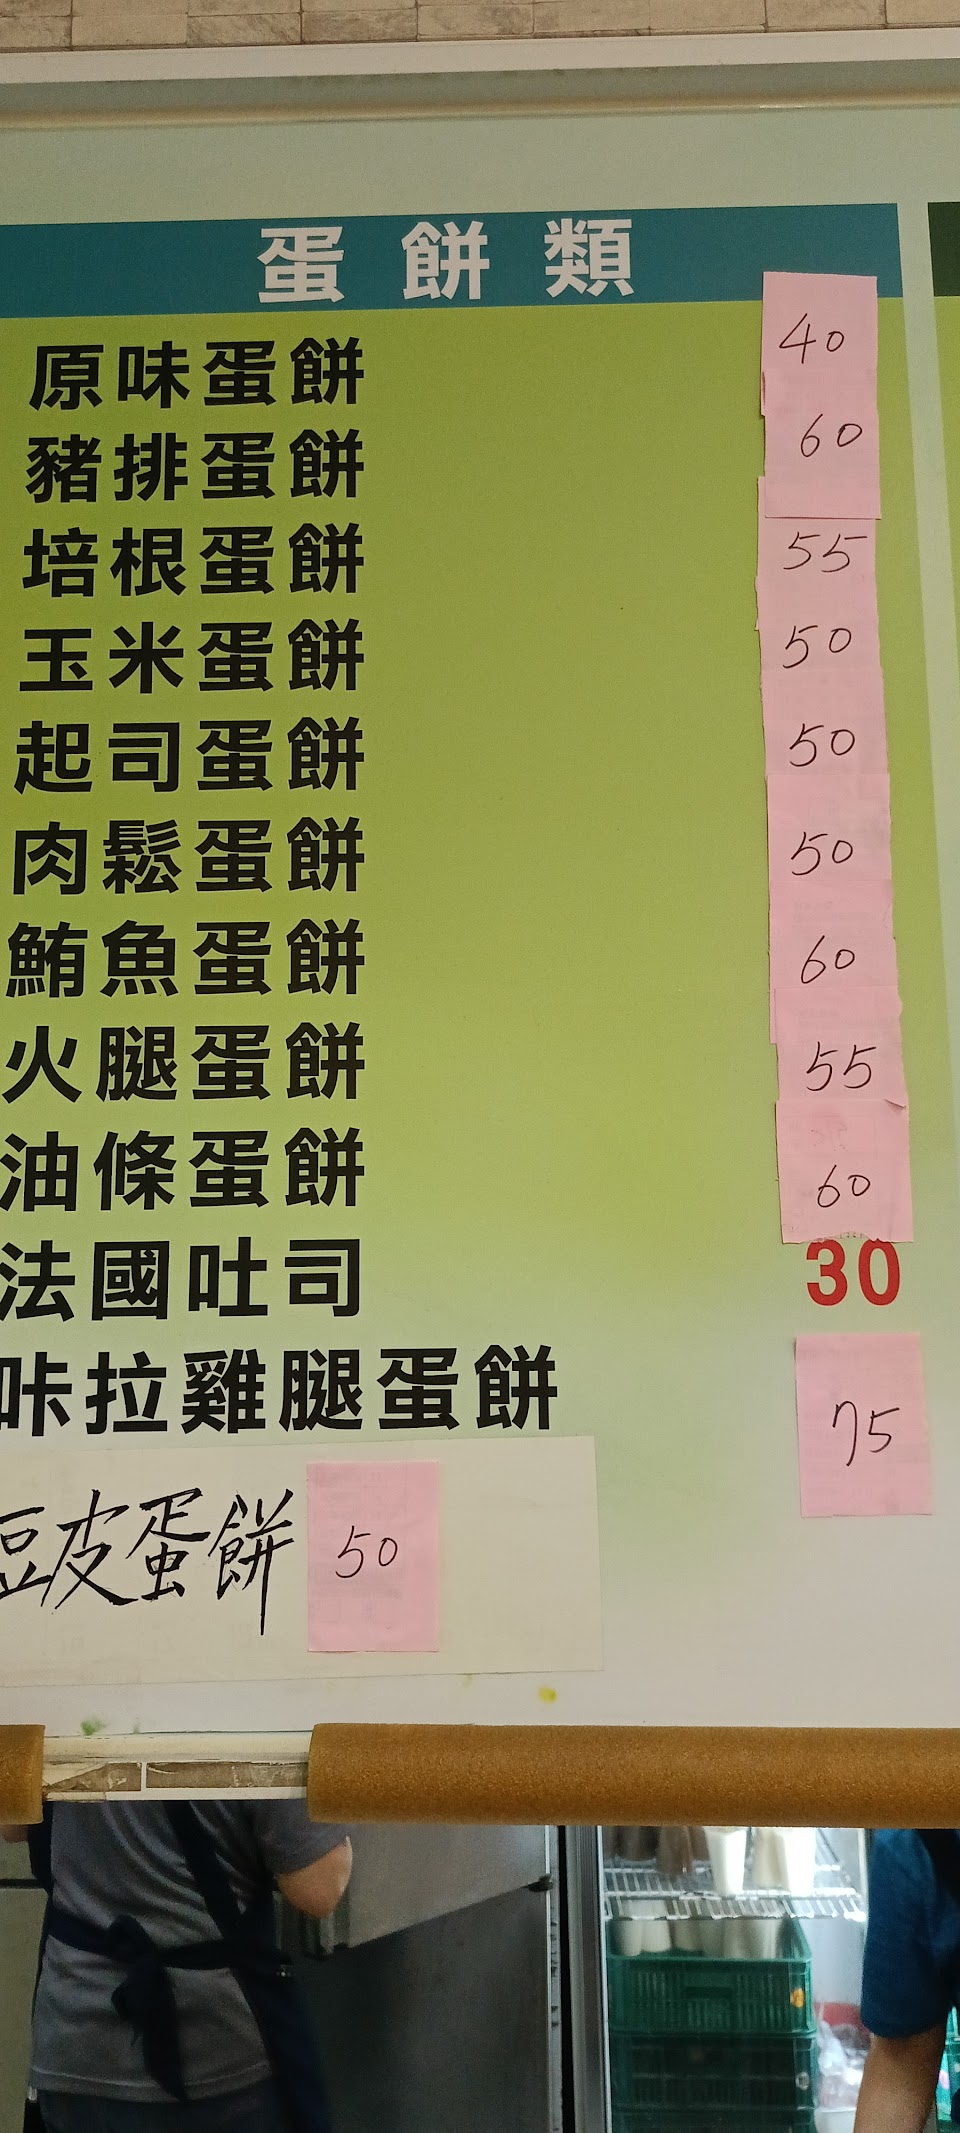 蛋餅類
原味蛋餅 40
豬排蛋餅 60
培根蛋餅 55
玉米蛋餅 50
起司蛋餅 50
肉鬆蛋餅 50
鮪魚蛋餅 60
火腿蛋餅 55
油條蛋餅 60
法國吐司 30
咔拉雞腿蛋餅 75
豆皮蛋餅 50